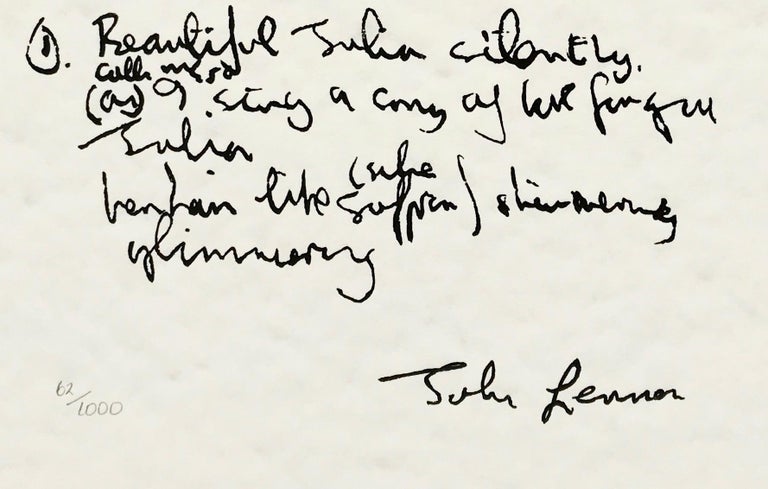 ①. Beautiful Julia silently.
calls me so
(as) I sing a song of love for you
Julia
her hair like (silke
saffron) shimmering
glimmering
John Lennon
62/1000